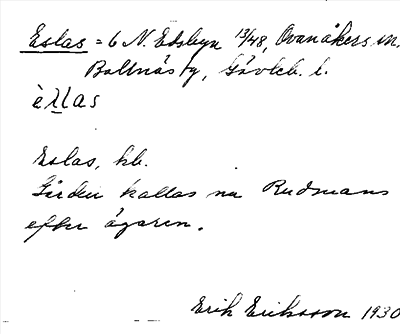 Eslas = 6 N. Edsbyn 13/48, Ovanåkers sn,
Bollnäs tg, Gävleb. l.
èḷḷas
Eslas, hb.
Gården kallas nu Rudmans
efter ägaren.
Erik Eriksson 1930